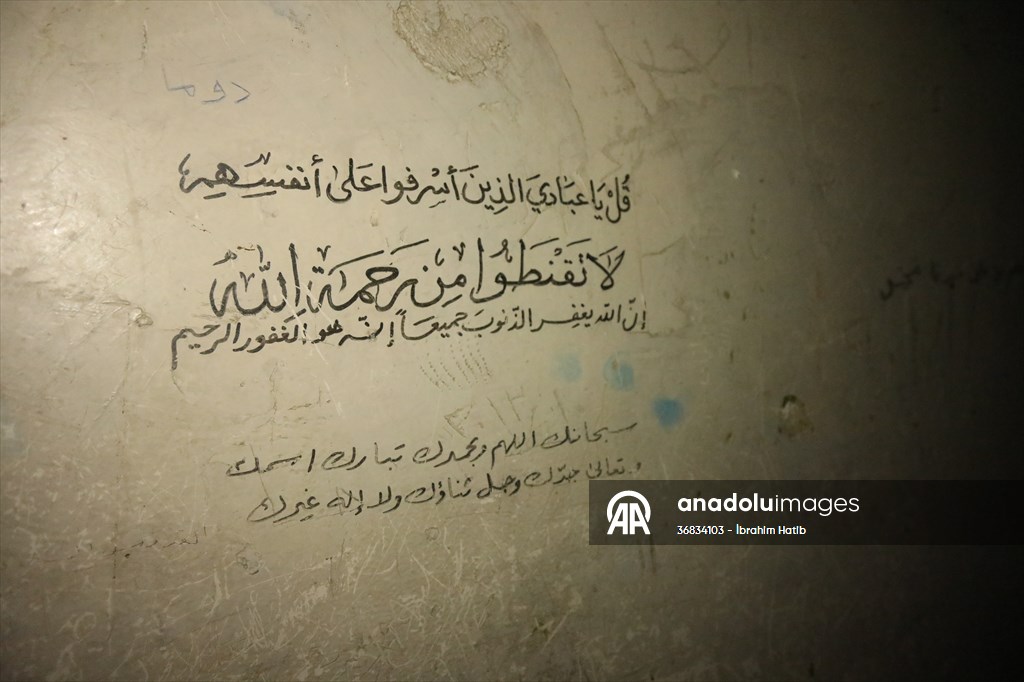 دوما
قُلْ يَا عِبَادِيَ الذِينَ أَسْرفوا عَلىٰ أنفسِهِم
لَا تَقْنَطُوا مِن رَحمَةِ اللّه
إنّ اللّه يغفِر الذّنوبَ جميعَاً إنّه هو الغفور الرحيم
سبحانك اللهم وبحمدك تبارك اسمك
وتعالىٰ جدّك وجل ثناؤك ولا إله غيرك
anadoluimages
AA
36834103 - İbrahim Hatib